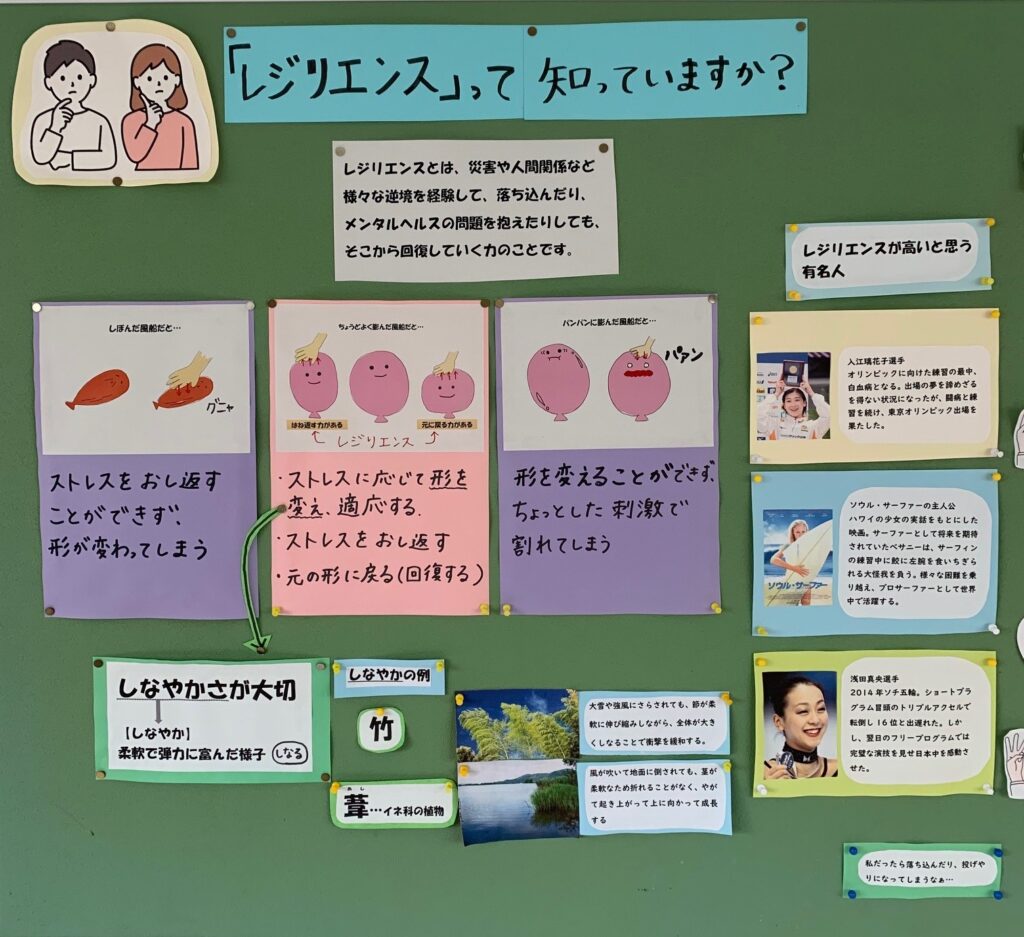 「レジリエンス」って 知っていますか？
レジリエンスとは、災害や人間関係など
様々な逆境を経験して、落ち込んだり、
メンタルヘルスの問題を抱えたりしても、
そこから回復していく力のことです。
しぼんだ風船だと…
グニャ
ストレスをおし返す
ことができず、
形が変わってしまう
ちょうどよく膨んだ風船だと…
はね返す力がある
元に戻る力がある
レジリエンス
・ストレスに応じて形を
変え、適応する.
・ストレスをおし返す
・元の形に戻る(回復する)
パンパンに膨んだ風船だと…
パァン
形を変えることができず、
ちょっとした刺激で
割れてしまう
しなやかさが大切
【しなやか】
柔軟で弾力に富んだ様子 しなる
しなやかの例
竹
大雪や強風にさらされても、節が柔
軟に伸び縮みしながら、全体が大き
くしなることで衝撃を緩和する。
あし
葦…イネ科の植物
風が吹いて地面に倒されても、茎が
柔軟なため折れることがなく、やが
て起き上がって上に向かって成長
する
レジリエンスが高いと思う
有名人
入江璃花子選手
オリンピックに向けた練習の最中、
白血病となる。出場の夢を諦めざる
を得ない状況になったが、闘病と練
習を続け、東京オリンピック出場を
果たした。
ソウル・サーファーの主人公
ハワイの少女の実話をもとにした
映画。サーファーとして将来を期待
されていたベサニーは、サーフィン
の練習中に鮫に左腕を食いちぎら
れる大怪我を負う。様々な困難を乗
り越え、プロサーファーとして世界
中で活躍する。
ソウル・サーファー
浅田真央選手
2014年ソチ五輪。ショートプラ
グラム冒頭のトリプルアクセルで
転倒し16位と出遅れた。しか
し、翌日のフリープログラムでは
完璧な演技を見せ日本中を感動さ
せた。
私だったら落ち込んだり、投げや
りになってしまうなぁ…